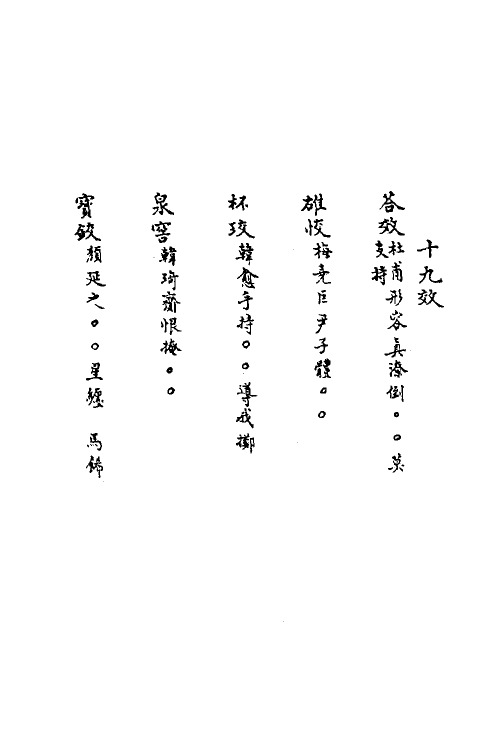 十九效
荅效杜甫形容眞潦倒○○莫支持
雄恔梅堯臣尹子體○○
杯珓韓愈手持○○導我擲
泉窖韓琦齎恨掩○○
寳鉸顏延之○○星纏　馬飾